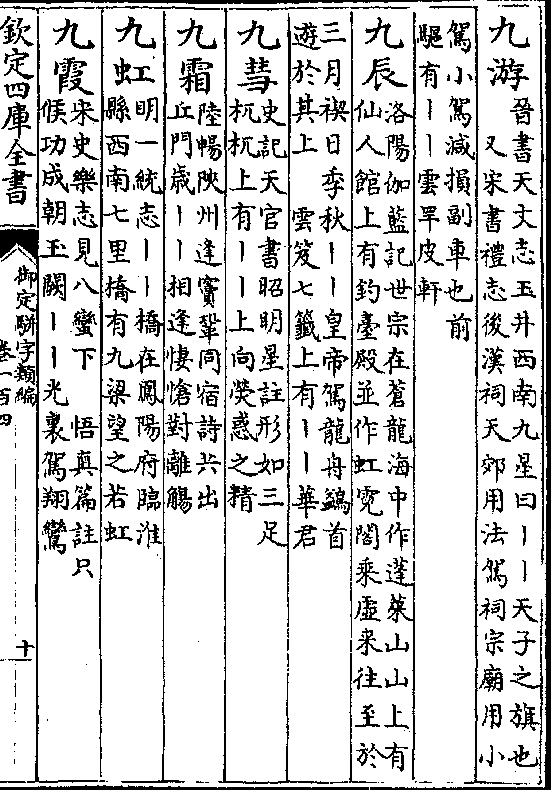 九游晉書天文志玉井西南九星曰丨丨天子之旗也
又宋書禮志後漢祠天郊用法駕祠宗廟用小
駕小駕減損副車也前
驅有丨丨雲罕皮軒
九辰洛陽伽藍記世宗在蒼龍海中作蓬萊山山上有
仙人館上有釣臺殿並作虹霓閣乘虛来往至於
三月禊日季秋丨丨皇帝駕龍舟鷁首
遊於其上 雲笈七籤上有丨丨華君
九彗史記天官書昭明星註形如三足
杌杌上有丨丨上向熒惑之精
九霜陸暢陜州逢竇鞏同宿詩共出
丘門歳丨丨相逢悽愴對離觴
九虹明一統志丨丨橋在鳳陽府臨淮
縣西南七里橋有九梁望之若虹
九霞宋史樂志見八鸞下 悟真篇註只
候功成朝玉闕丨丨光裏駕翔鸞
欽定四庫全書
御定駢字類編
卷一百四
十